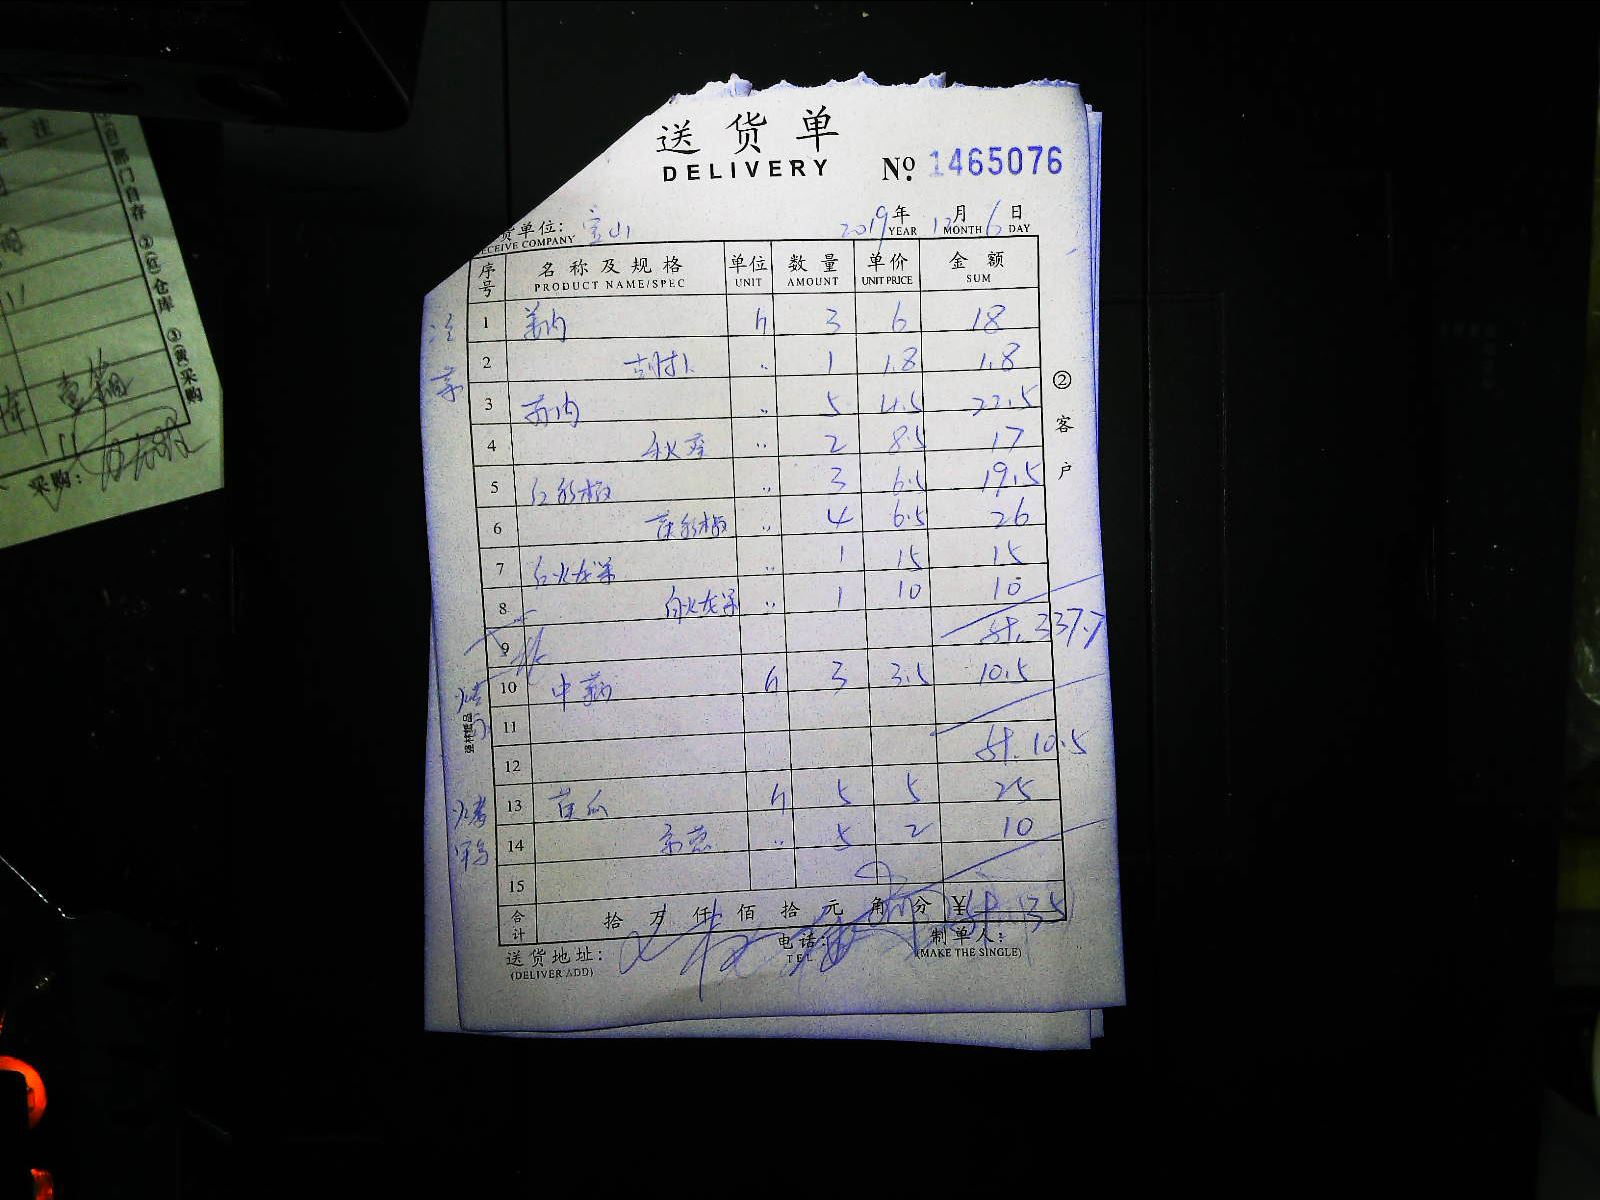 送货单
DELIVERY
No. 1465076
货单位: 宝山
2019年 12月 6日
RECEIVE COMPANY YEAR MONTH DAY
序号 名称及规格 单位 数量 单价 金额
PRODUCT NAME/SPEC UNIT AMOUNT UNIT PRICE SUM
1 3 6 18
2 〃 1 1.8 1.8
3 〃 5 4.5 22.5
4 秋葵 〃 2 8.5 17
5 红彩椒 〃 3 6.5 19.5
6 黄彩椒 〃 4 6.5 26
7 红火龙果 〃 1 15 15
8 白火龙果 〃 1 10 10
9 计. 337.7
10 3 3.5 10.5
11
12 计. 10.5
13 黄瓜 5 5 25
14 京葱 〃 5 2 10
15
合计 拾 万 仟 佰 拾 元 角 分 ¥ 计. 35
送货地址: 电话: 制单人:
(DELIVER ADD) TEL (MAKE THE SINGLE)
②客户
烤鸭
备注
门自存 ②(红)仓库 ③(黄)采购
采购: